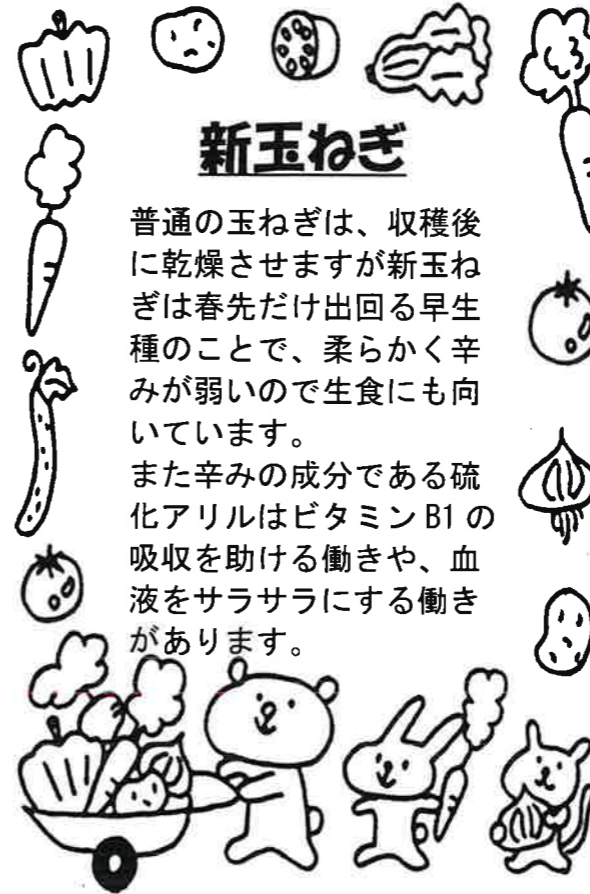 新玉ねぎ
普通の玉ねぎは、収穫後
に乾燥させますが新玉ね
ぎは春先だけ出回る早生
種のことで、柔らかく辛
みが弱いので生食にも向
いています。
また辛みの成分である硫
化アリルはビタミン B1 の
吸収を助ける働きや、血
液をサラサラにする働き
があります。